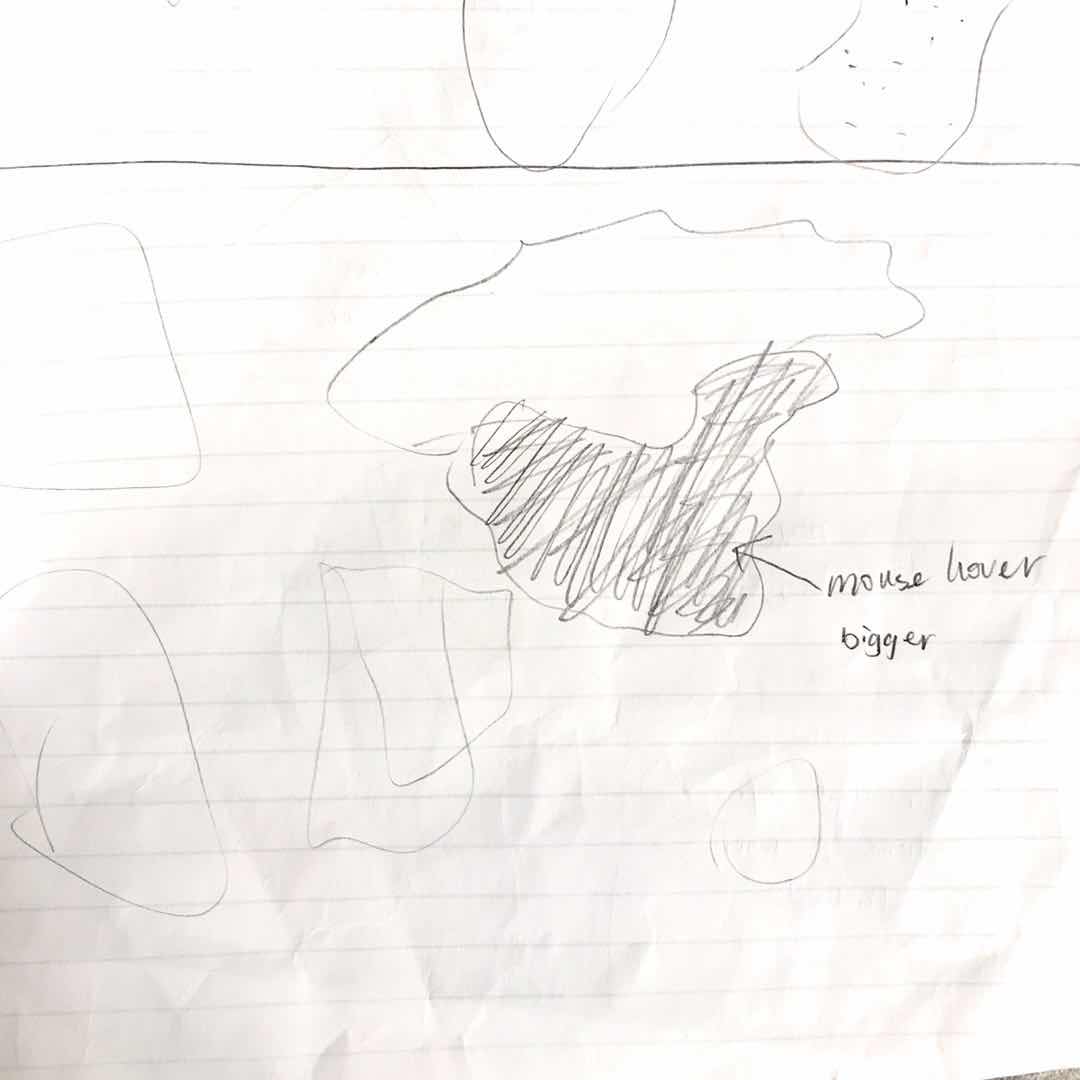 mouse hover
bigger